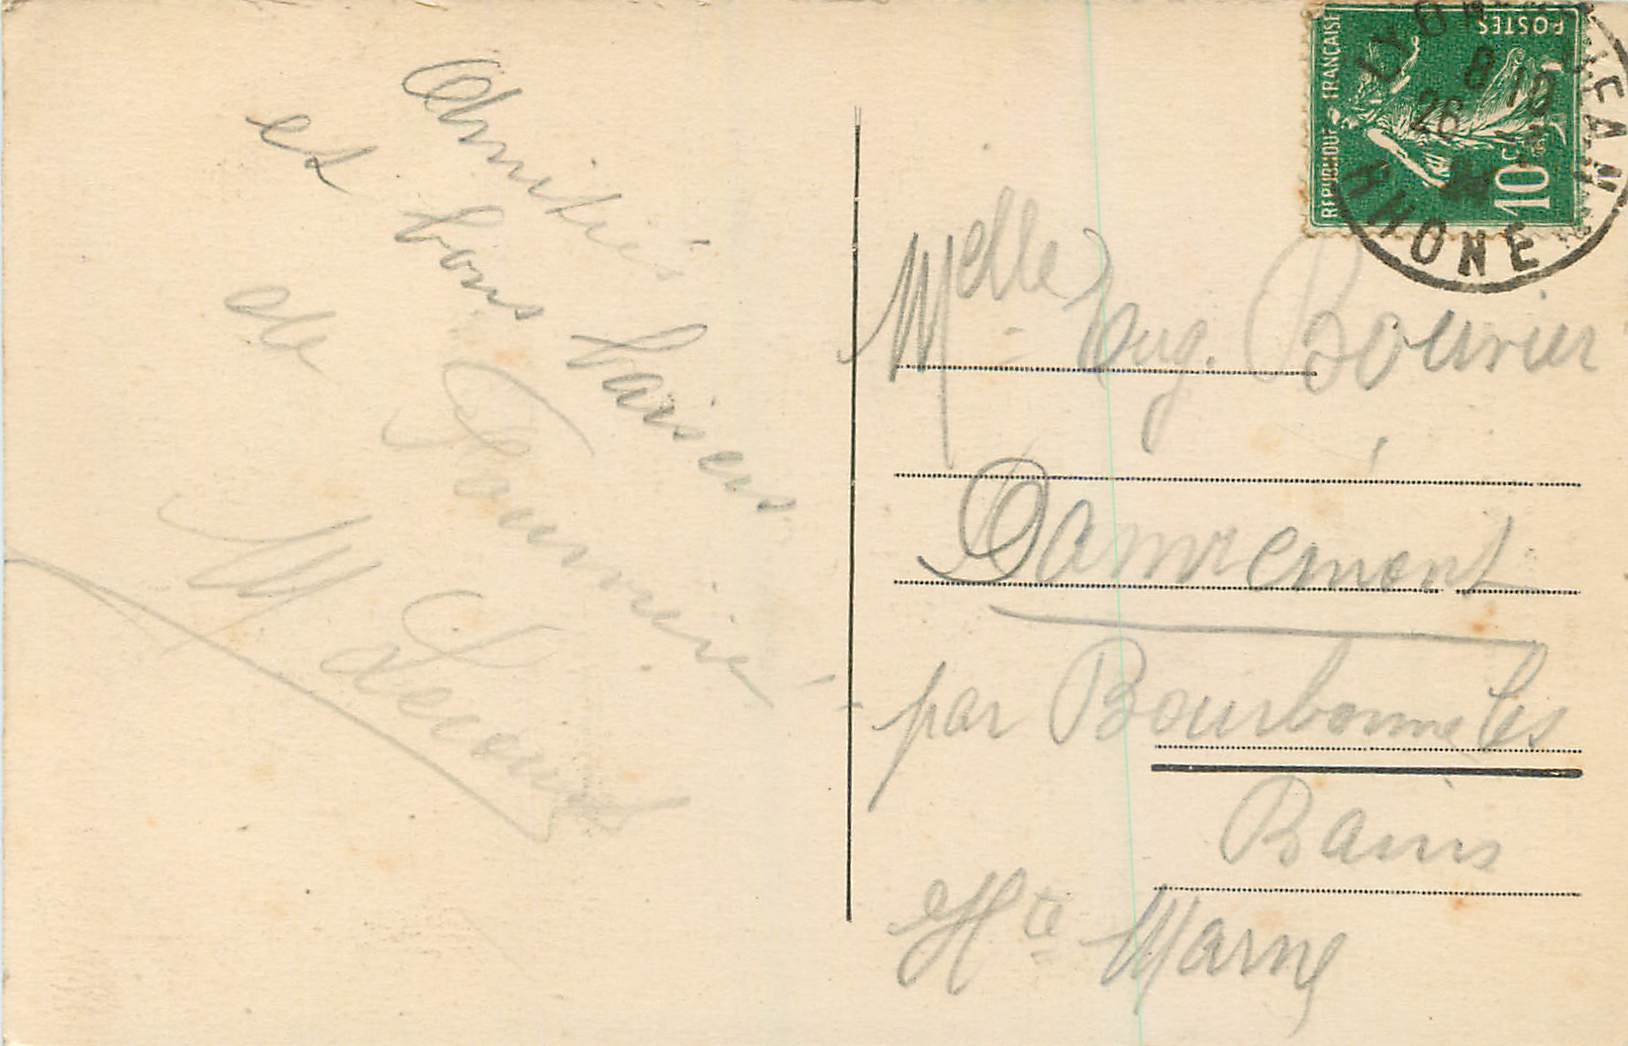 Amitiés
et bons baisers
de Fournier
M Lecourt
REPUBLIQUE FRANÇAISE
POSTES
10c
LYON
RHONE
8 10
26
Melle Eug. Bouvier
Damremont
par Bourbonne les
Bains
Hte Marne